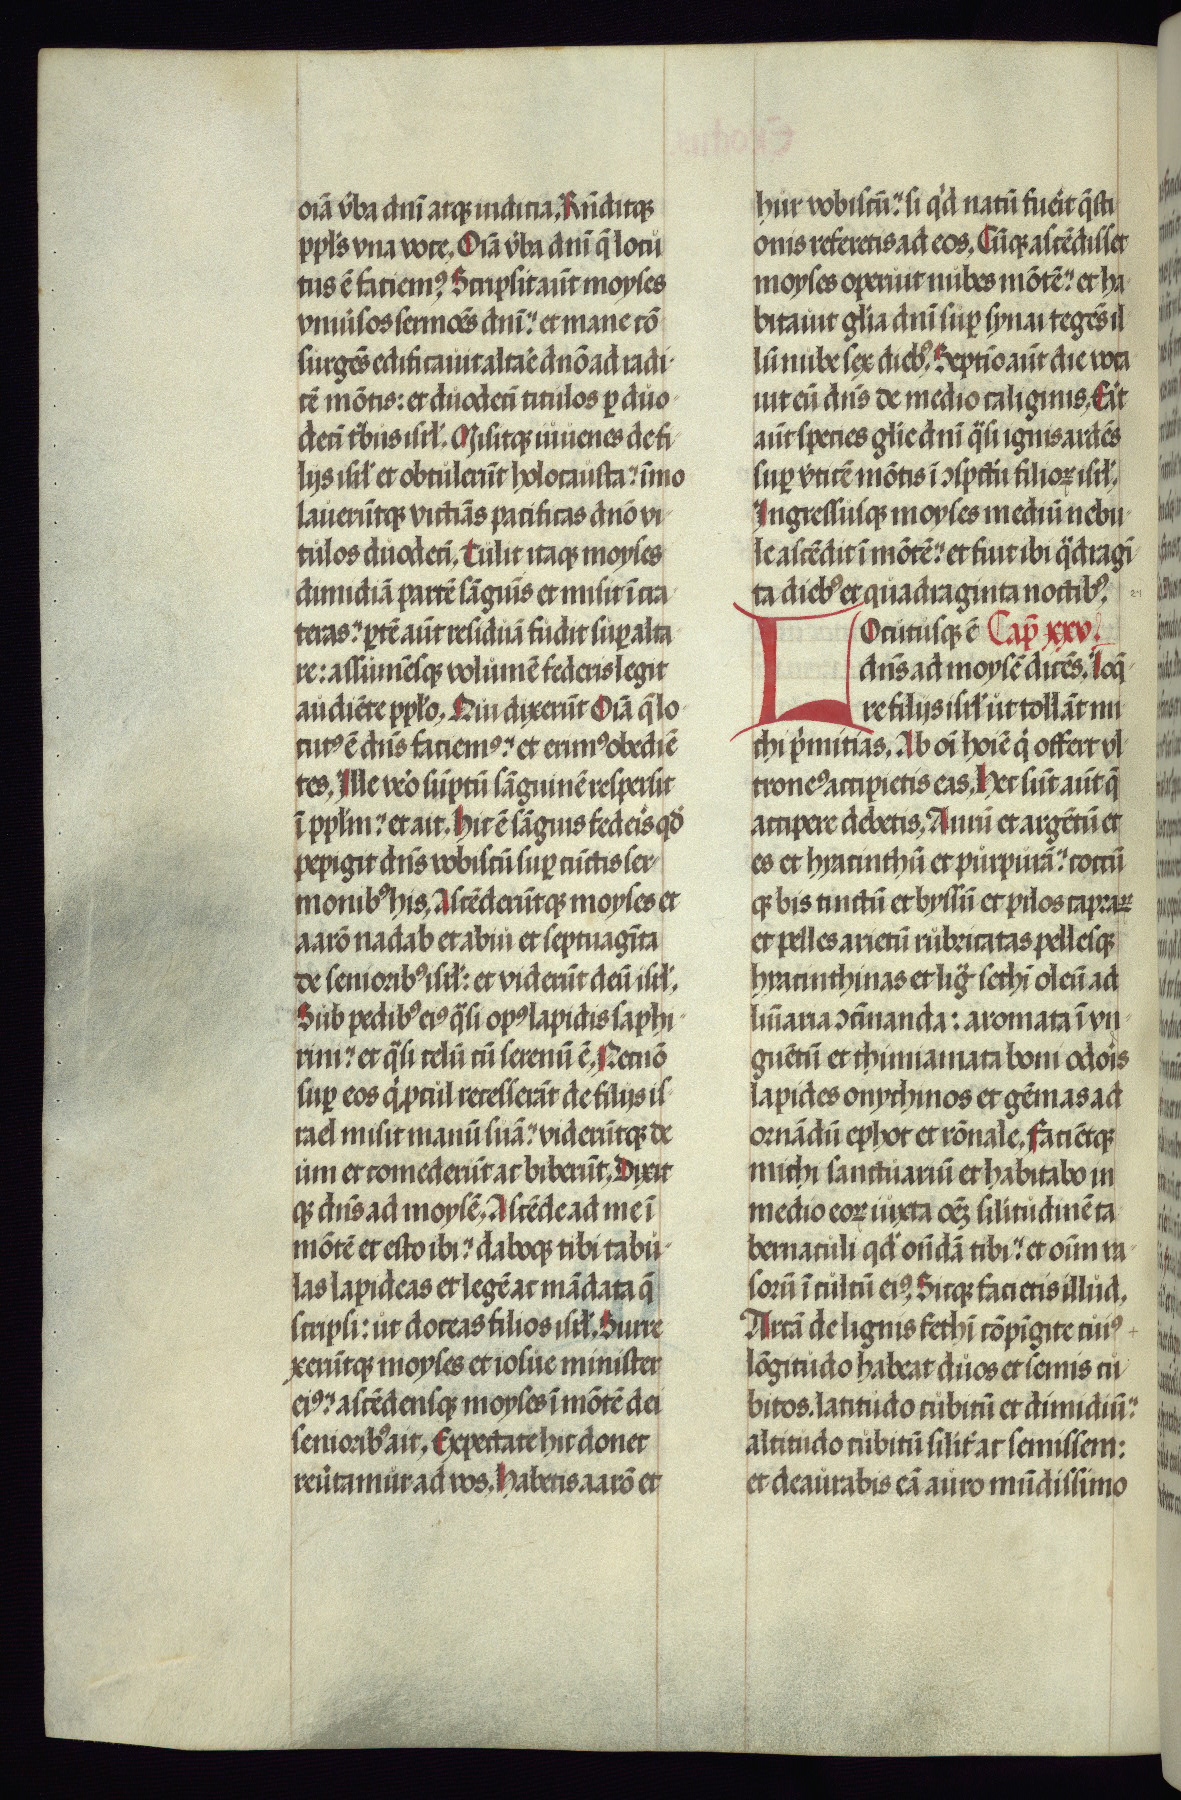 oīa v̾ba dnī atq; iudicia. Rn̄ditq;
ppl's vna voce. Oīa v̾ba dnī q̄ locu
tus ē faciem⁹. Scripsit aūt moyses
vniu̾sos sermōes dnī: et mane cō
surgēs edificauit altar̾e dnō ad radi
cē mōtis: et duodecī titulos p̱ duo
decī tribus isrl'. Misitq; iuuenes de fi
lijs isrl' et obtulerūt holocausta: īmo
lauerūtq; victīas pacificas dnō vi
tulos duodecī. Tulit itaq; moyses
dimidiā partē sāguīs et misit ī cra
teras: ꝑtē aūt residuā fudit suꝑ alta
re: assumēsq; volumē federis legit
audiēte ppl'o. Qui dixerūt Oīa q̄ lo
cut⁹ ē dn̄s faciem⁹: et erim⁹ obediē
tes. Ille ve̾o sūptū sāguinē respersit
ī ppl'm: et ait. Hic ē sāguis feder̾is qd̾
pepigit dn̄s vobiscū suꝑ cūctis ser
monib⁹ his. Ascēderūtq; moyses et
aarō nadab et abiu et septuagīta
de seniorib⁹ isrl': et viderūt deū isrl'.
Sub pedib⁹ ei⁹ q̄si op⁹ lapidis saphi
rini: et q̄si celū cū serenū ē. Nec nō
suꝑ eos q̇ ꝓcul recesserāt de filijs is
rael misit manū suā: viderūtq; de
um et comederūt ac biberūt. Dixit
q; dn̄s ad moysē. Ascēde ad me ī
mōtē et esto ibi: daboq; tibi tabu
las lapideas et legē ac mādata q̄
scripsi: ut doceas filios isrl'. Surre
xerūtq; moyses et iosue minister
ei⁹: ascēdensq; moyses ī mōtē dei
seniorib⁹ ait. Expectate hic donec
reu̾tamur ad vos. Habetis aarō et
hur vobiscū: si q̇d natū fuer̾it q̄sti
onis referetis ad eos. Cūq; ascēdisset
moyses operuit nubes mōtē: et ha
bitauit gl'ia dnī suꝑ synai tegēs il
lū nube sex dieb⁹. Septīo aūt die voca
uit eū dn̄s de medio caliginis. Er̾at
aūt species gl'ie dnī q̄si ignis ardēs
suꝑ v̾ticē mōtis ī ↄspectū filioꝝ isrl'.
Ingressusq; moyses mediū nebu
le ascēdit ī mōtē: et fuit ibi q̄dragī
ta dieb⁹ et quadraginta noctib⁹.
Locutusq; ē Cap̄ xxv.
dn̄s ad moysē dicēs. Loq̄
re filijs isrl' ut tollāt mi
chi p̾mitias. Ab oī hoīe q̇ offert vl
trone⁹ accipietis eas. Hec sūt aūt q̄
accipere debetis. Aurū et argētū et
es et hyacinthū et purpurā: coccū
q; bis tinctū et byssū et pilos capraꝝ
et pelles arietū rubricatas pellesq;
hyacinthinas et lig̾ sethī oleū ad
lūīaria ↄcīnanda: aromata ī vn
guētū et thimiamata boni odor̾is
lapides onychinos et gēmas ad
ornādū ephot et rōnale. Faciētq;
michi sanctuariū et habitabo in
medio eoꝝ iuxta oēȝ silitudinē ta
bernaculi qd̾ osn̄dā tibi: et oīm va
sorū ī cultū ei⁹. Sicq; facietis illud.
Arcā de lignis sethī cōpīgite cui⁹
lōgitudo habeat duos et semis cu
bitos. latitudo cubitū et dimidiū:
altitudo cubitū silit̾ ac semissem:
et deaurabis eā auro mūdissimo